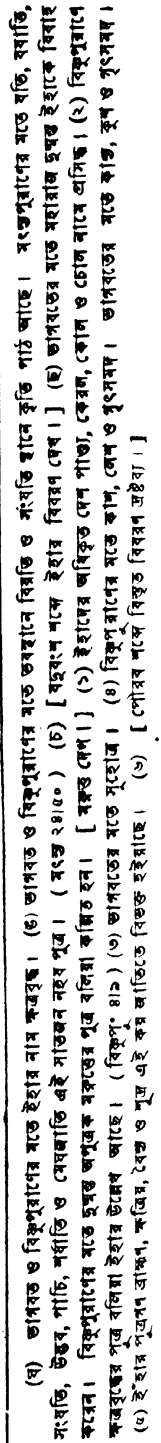 (ঘ) ভাগবত ও বিষ্ণুপুরাণের মতে ইহার নাম ক্ষত্রবৃদ্ধ। (ঙ) ভাগবত ও বিষ্ণুপুরাণের মতে ভবস্থানে বিয়তি ও সংযতি স্থানে কৃতি পাঠ আছে। মৎস্যপুরাণের মতে যতি, যযাতি,
সংযতি, উদ্ভব, পাচি, শর্যাতি ও মেঘজাতি এই সাতজন নহুষ পুত্র। ( মৎস্য ২৪।৫০ ) (চ) [ যদুবংশ শব্দে ইহার বিবরণ দেখ। ] (ছ) ভাগবতের মতে মহারাজ দুষ্মন্ত ইহাকে বিবাহ
করেন। বিষ্ণুপুরাণের মতে দুষ্মন্ত অপুত্রক মরুত্তের পুত্র বলিয়া কল্পিত হন। [ মরুত্ত দেখ। ] (১) ইহাদের অধিকৃত দেশ পাণ্ড্য, কেরল, কোল ও চোল নামে প্রসিদ্ধ। (২) বিষ্ণুপুরাণে
ক্ষত্রবৃদ্ধের পুত্র বলিয়া ইহার উল্লেখ আছে। ( বিষ্ণুপু° ৪।৯ ) (৩) ভাগবতের মতে সুহোত্র। (৪) বিষ্ণুপুরাণের মতে কাশ, লেশ ও গৃৎসমদ। ভাগবতের মতে কাশ্য, কুশ ও গৃৎসমদ।
(৫) ইঁহার পুত্রগণ ব্রাহ্মণ, ক্ষত্রিয়, বৈশ্য ও শূদ্র এই কয় জাতিতে বিভক্ত হইয়াছে। (৬) [ পৌরব শব্দে বিস্তৃত বিবরণ দ্রষ্টব্য। ]